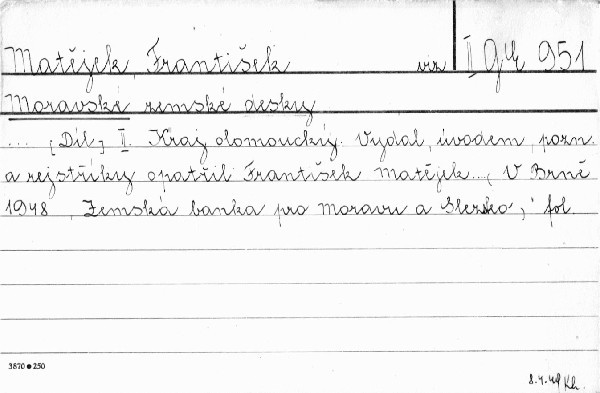 Matějek, František viz I 9 951
Moravské zemské desky
... [Díl] II. Kraj olomoucký. Vydal, úvodem, pozn.
a rejstříky opatřil František Matějek..., V Brně
1948, Zemská banka pro Moravu a Slezsko, fol.
3870 ● 250
8.4.49 Kh.